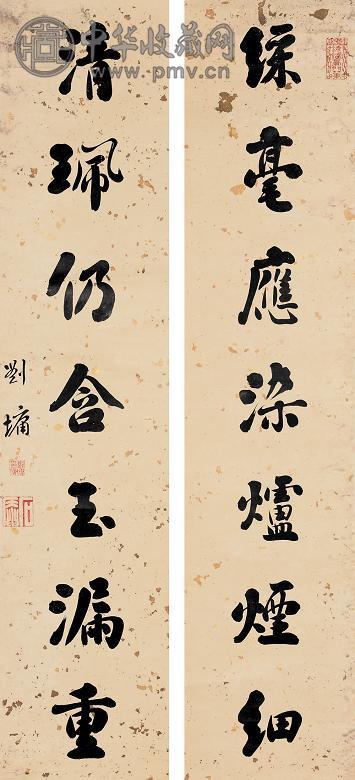 中华收藏网
www.pmv.cn
綵毫應染爐煙細
清珮仍含玉漏重
劉墉